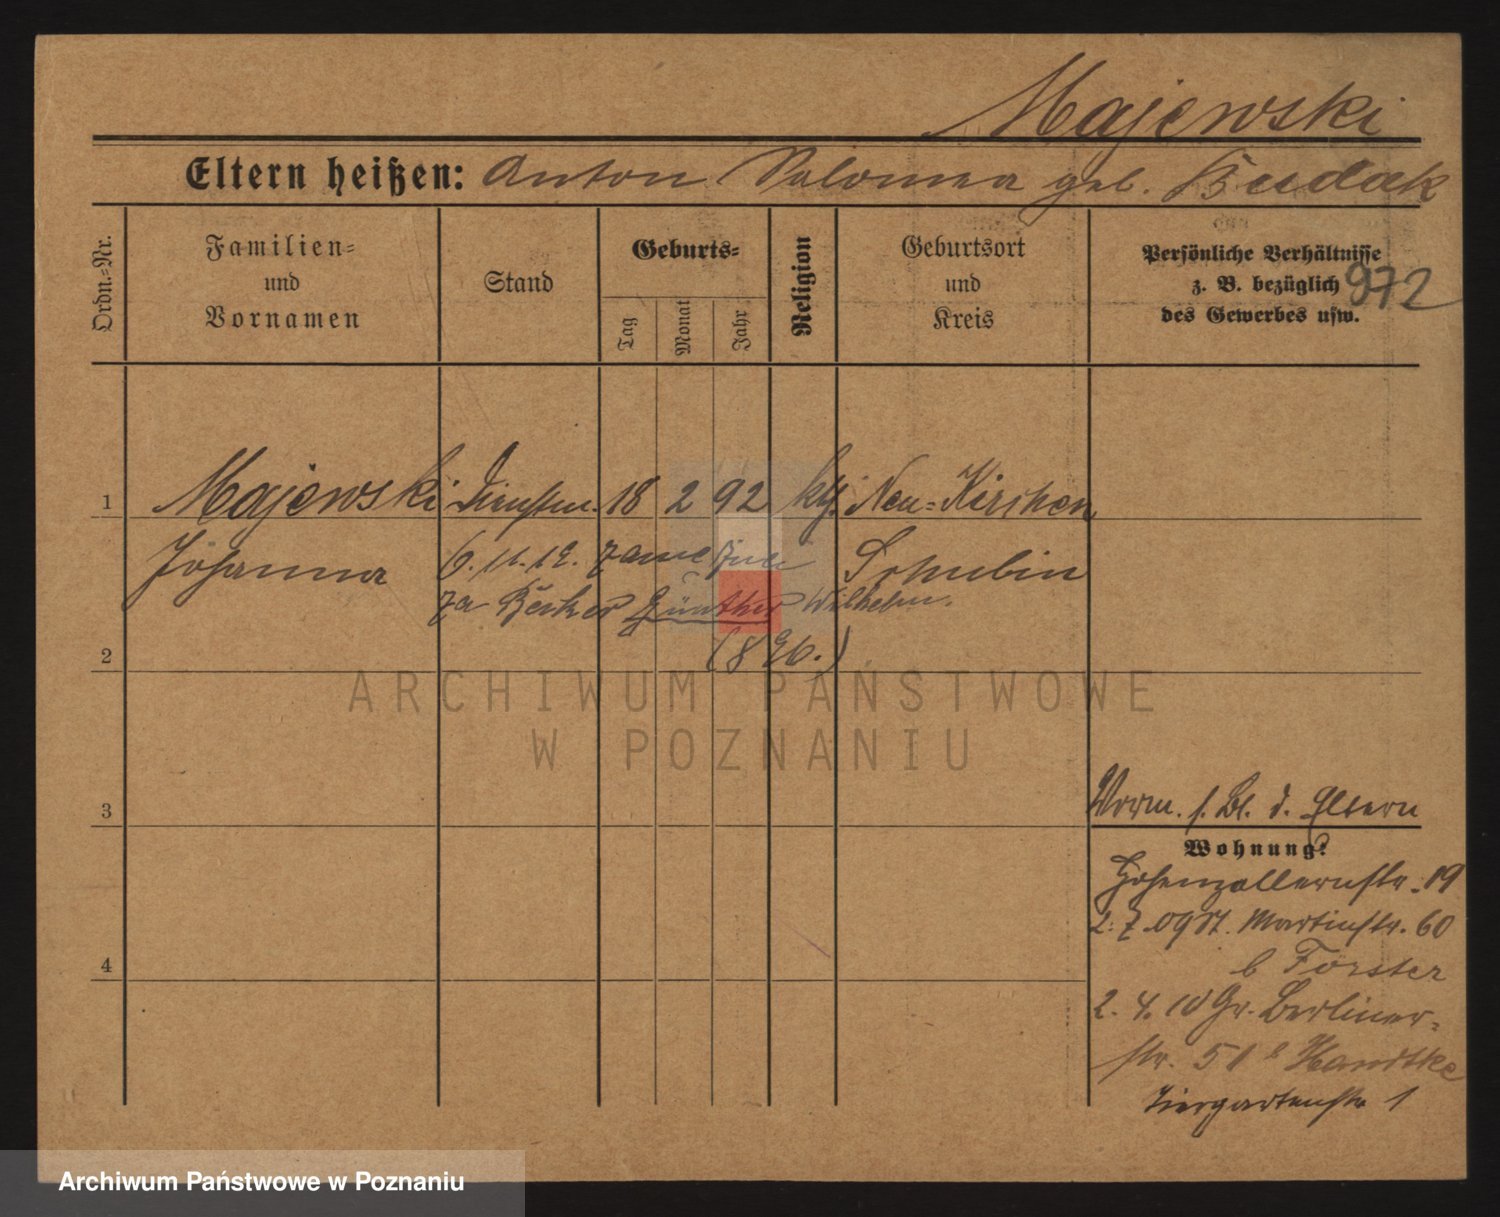 Majewski
Eltern heißen: Anton Salomea geb. Budak
Ordn.=Nr.
Familien=
und
Vornamen
Stand
Geburts=
Tag
Monat
Jahr
Religion
Geburtsort
und
Kreis
Persönliche Verhältnisse
z. B. bezüglich
des Gewerbes usw.
972
1 Majewski Dienstm. 18 2 92 kth. Neu=Kirchen
Johanna
Schubin
6. 11. 12.
Günther Wilhelm.
(896.)
2
ARCHIWUM PAŃSTWOWE
W POZNANIU
3
s. Bl. d. Eltern
Wohnung:
Hohenzollernstr. 19
2. 7. 09 St. Martinstr. 60
b Forster
2. 4. 10 Gr. Berliner=
str. 51 b Handtke
Tiergartenstr 1
4
Archiwum Państwowe w Poznaniu